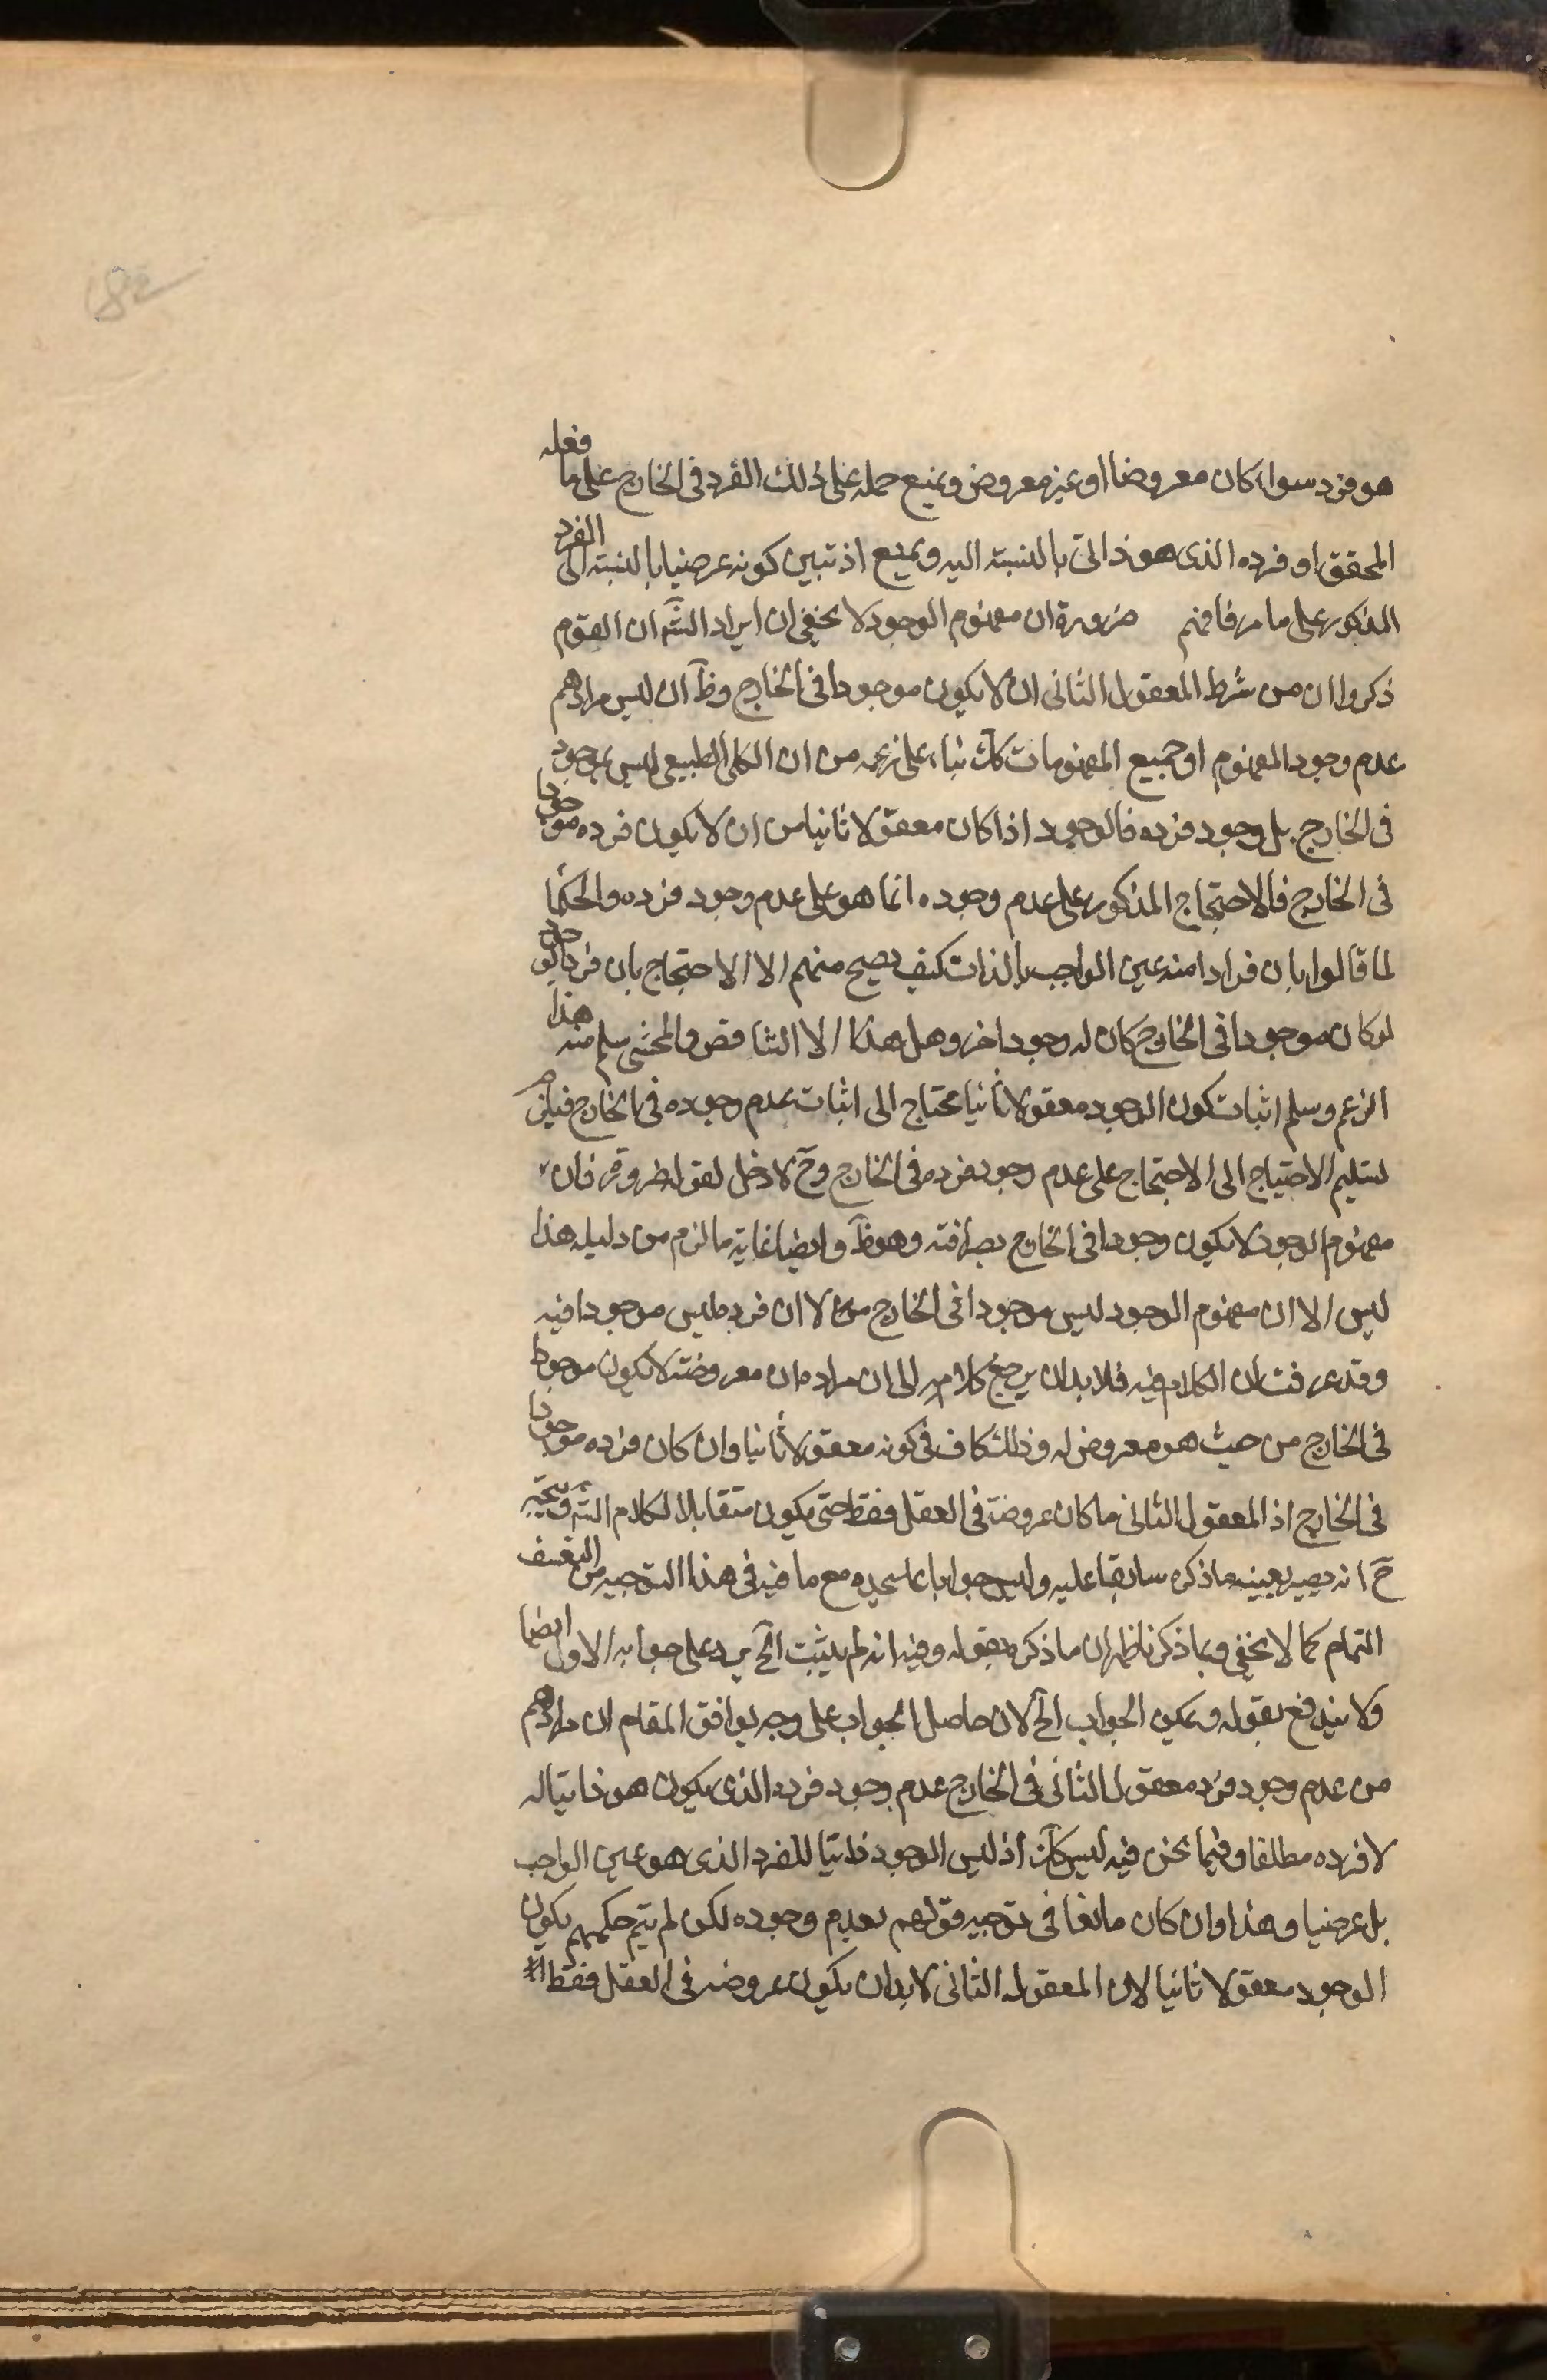 82
هو فرد سواء كان معروضا او غير معروض ويمنع حمله على ذلك الفرد فى الخارج على ما فعله
المحقق او فرده الذى هو ذاتى بالنسبة اليه ويمنع اذ تبين كونه عرضيا بالنسبة الى الفرد
المذكور على ما مر فافهم ضرورة ان مفهوم الوجود لا يخفى ان ايراد الشّ ان القوم
ذكروا ان من شرط المعقول الثانى ان لا يكون موجودا فى الخارج وظّ ان ليس مرادهم
عدم وجود المفهوم او جميع المفهومات كك بناء على زعمه من ان الكلى الطبيعى ليس بموجود
فى الخارج بل وجود فرده فالوجود اذا كان معقولا ثانيا من ان لا يكون فرده موجودا
فى الخارج فالاحتجاج المذكور على عدم وجوده انما هو على عدم وجود فرده والحكما
لما قالوا بان فرادا منه عين الواجب بالذات كيف يصح منهم الا الاحتجاج بان فرد الوجود
لو كان موجودا فى الخارج كان له وجود اخر وهل هذا الا التناقض والمحشى سلم منه هذا
الزعم وسلم اثبات كون الوجود معقولا ثانيا محتاج الى اثبات عدم وجوده فى الخارج فيلزم
تسليم الاحتياج الى الاحتجاج على عدم وجود فرده فى الخارج وحّ لا دخل لقوله ضرورة فان
مفهوم الوجود لا يكون وجودا فى الخارج بصرافته وهو ظّ وايضا غاية ما لزم من دليله هذا
ليس الا ان مفهوم الوجود ليس موجودا فى الخارج لا ان فرده ليس موجودا فيه
وقد عرفت ان الكلام فيه فلا بد ان يرجع كلامه الى ان مراده ان معروضه لا يكون موجودا
فى الخارج من حيث هو معروض له وذلك كاف فى كونه معقولا ثانيا وان كان فرده موجودا
فى الخارج اذ المعقول الثانى ما كان عروضه فى العقل فقط حتى يكون متقابلا لكلام الشّ ويتجه
حّ انه يصير بعينه ما ذكره سابقا عليه وليس جوابا على حده مع ما فيه فى هذا التوجيه من التعسف
التمام كما لا يخفى وبما ذكرنا ظهر ان ما ذكره بقوله وفيه انه لم يثبت الخ يرد على جوابه الاول ايضا
ولا يندفع بقوله ويمكن الجواب الخ لان حاصل الجواب على وجه يوافق المقام ان مرادهم
من عدم وجود فرد معقول الثانى فى الخارج عدم وجود فرده الذى يكون هو ذاتيا له
لا فرده مطلقا وفيما نحن فيه ليس كك اذ ليس الوجود ذاتيا للفرد الذى هو عين الواجب
بل عرضيا وهذا وان كان مانعا فى توجيه قولهم بعدم وجوده لكن لم يتم حكمهم بكون
الوجود معقولا ثانيا لان المعقول الثانى لا بد ان يكون عروضه فى العقل فقط